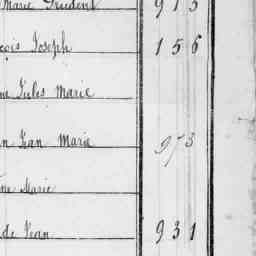 Marie Prudent 913
çois Joseph 156
me Jules Marie
n Jean Marie 973
me Marie
de Jean 931